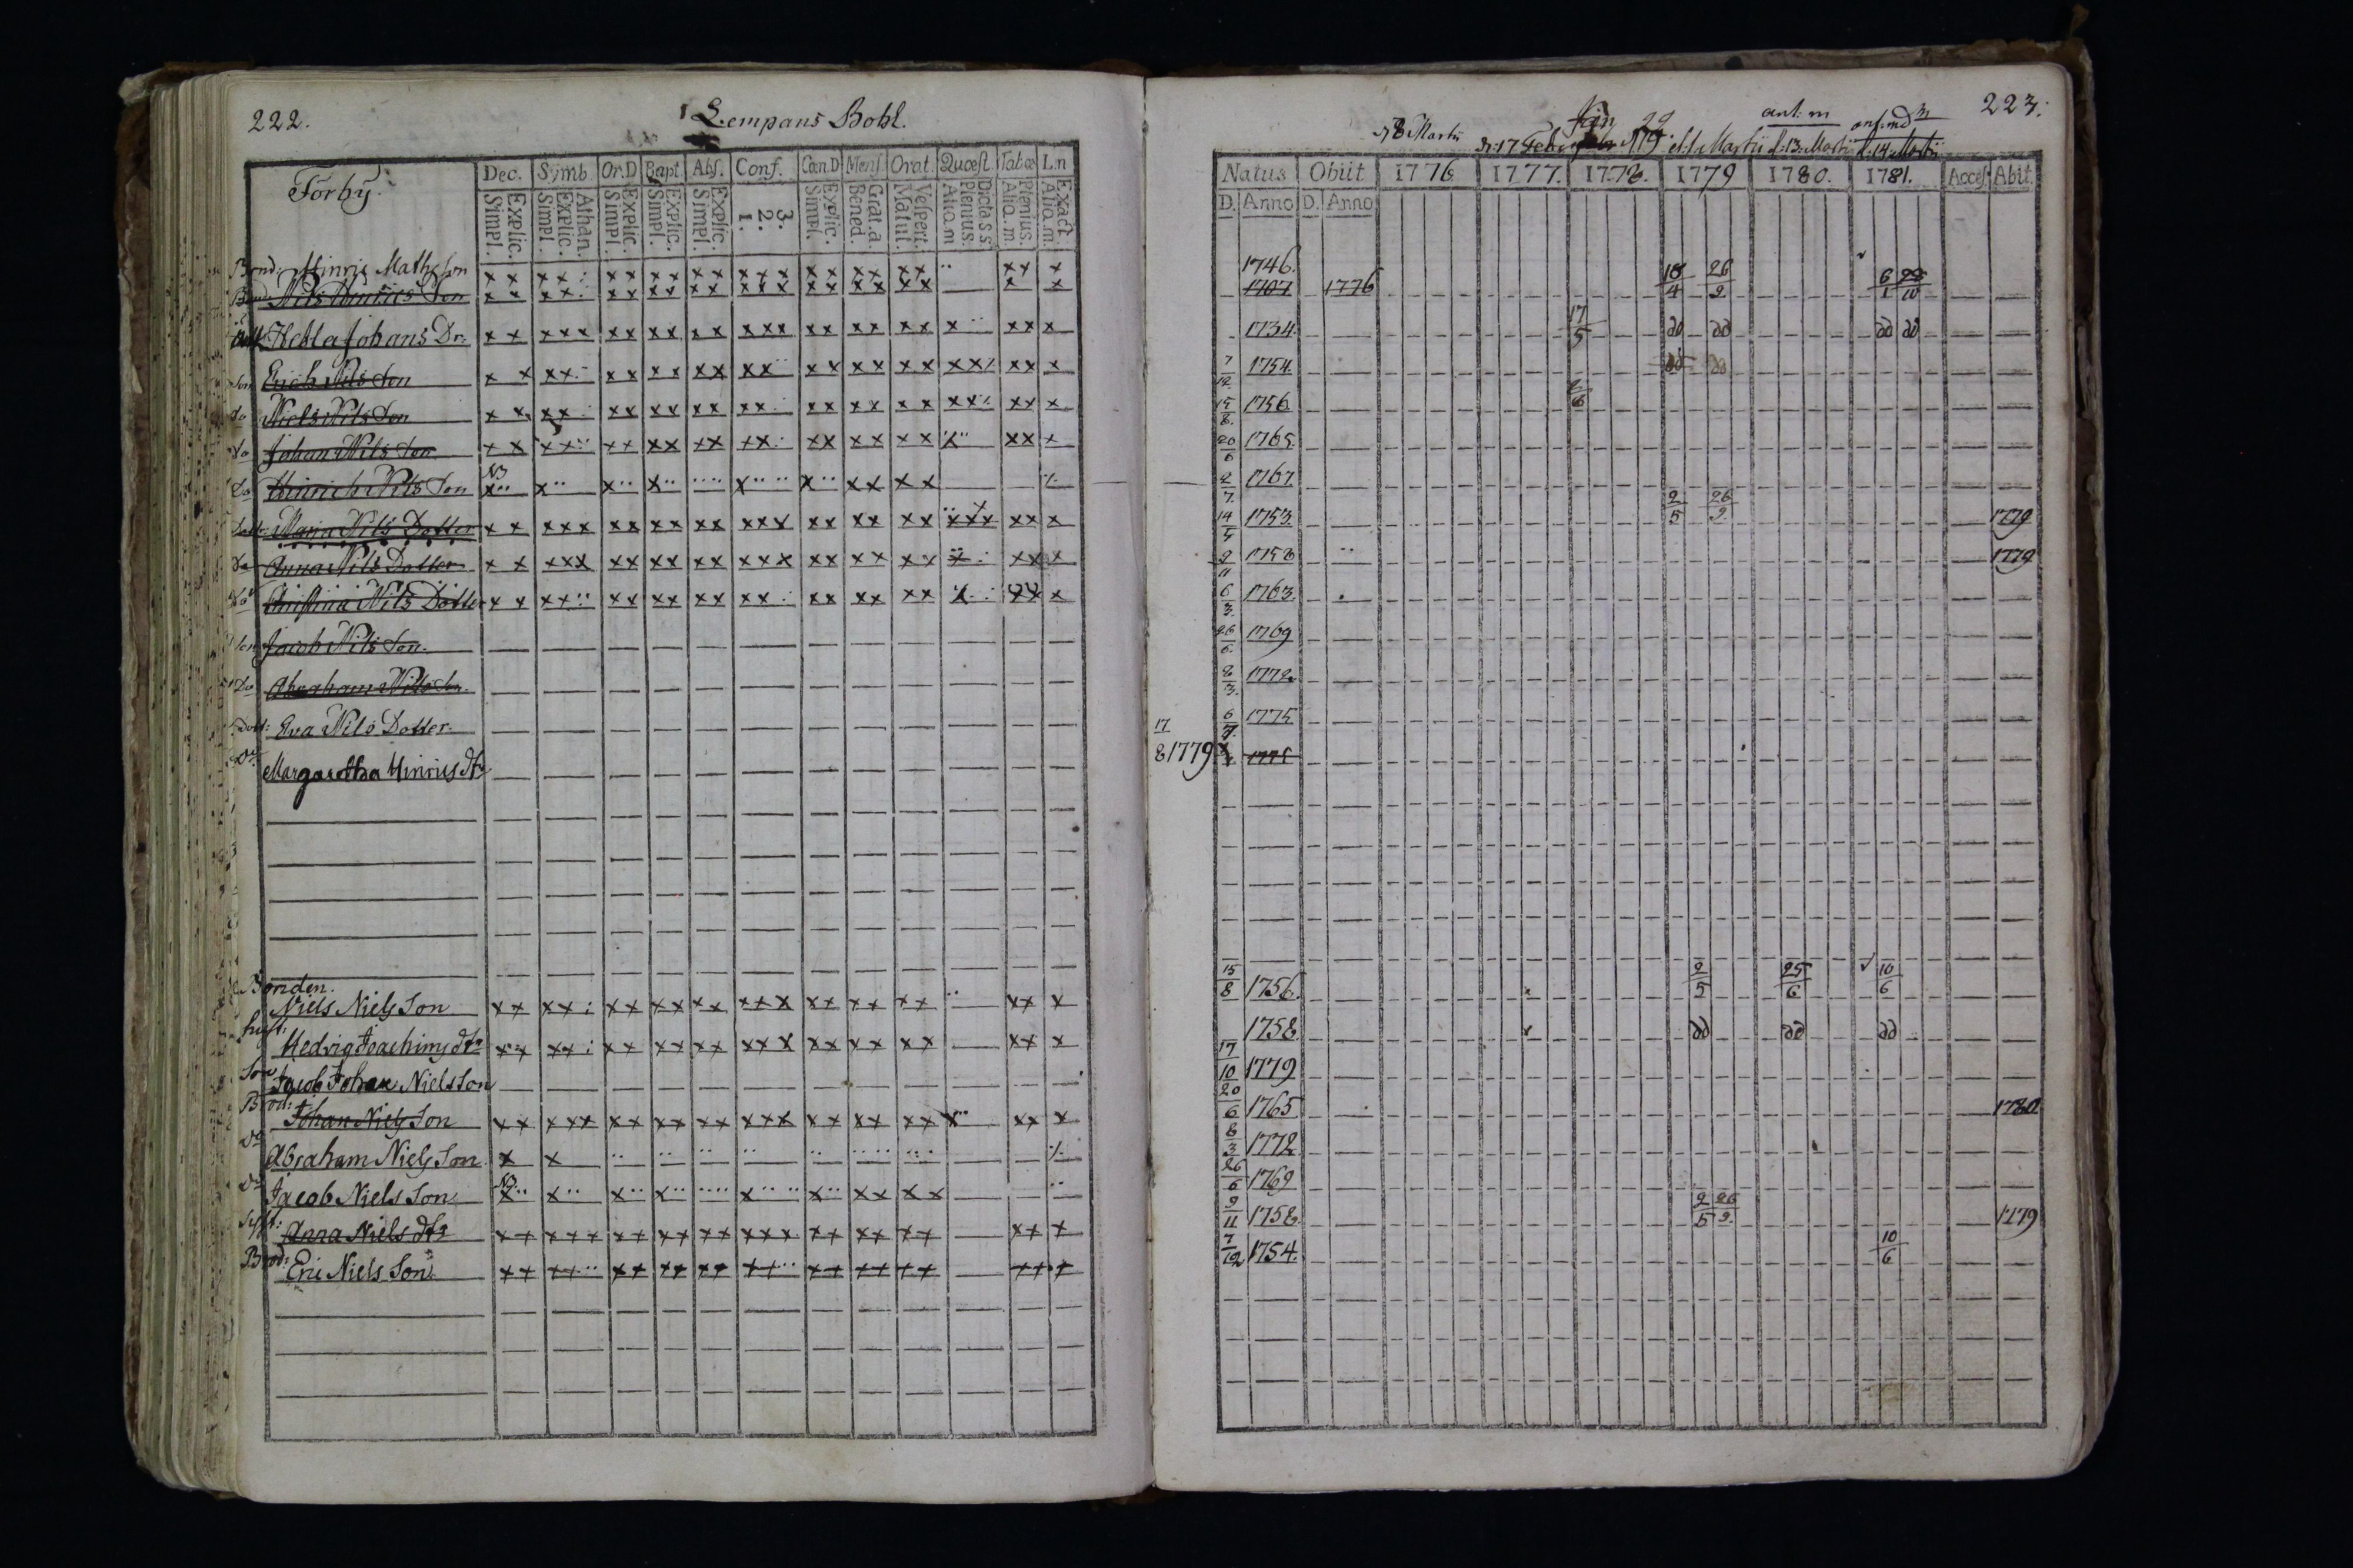 222.
Lempans Bohl.
Förby.
Dec. Symb. Or.D Bapt. Abs. Conf. Can.D Mens. Orat. Quæst. Tabæ L.n
Simpl. Explic. Simpl. Explic. Athan. Simpl. Explic. Simpl. Explic. Simpl. Explic. 1. 2. 3. Simpl. Explic. Bened. Grat. a. Matut. Vespert. Aliq. m Plenius. Dicta s s Aliq. m Plenius. Aliq. m. Exact.
Bond: Hinric Maths Son
Bond Nils Hinrics Son
Hebla Johans Dr:
Son Erich Nils Son
do Niels Nils Son
do Johan Nils Son
do Hinrich Nils Son
NB
Dott: Maria Nils Dotter
do Anna Nils Dotter
do Christina Nils Dotter
Son Jacob Nils Son.
Do Abraham Nils Son.
Dott: Eva Nils Dotter.
Do Margaretha Hinrics dtr
Bonden.
Niels Niels Son
hust:
Hedvig Joachims dtr
Son
Jacob Johan Niels Son
Brod:
Johan Niels Son
Do
Abraham Niels Son
Do
Jacob Niels Son
NB
Syst:
Anna Niels dtr
Brod:
Eric Niels Son
223.
ant: m
d 8 Martii
d. 1 Martii d. 13. Martii d. 14 Martii
Natus Obiit 1776 1777. 1778. 1779 1780. 1781. Acces. Abit.
D. Anno D. Anno
1746. 18/4 26/9 6/1 22/10
1707 1776
1734. 17/5 do do do do
7/12 1754. do do
15/8 1756
20/6 1765
2/7 1767
14/5 1753. 2/5 26/9 1779
9/11 1758 1779
6/3 1763.
26/6 1769
8/3 1772
6/7 1775
17/8 1779 1775
15/8 1756. 2/5 25/6 10/6
1758. do do do
17/10 1779
20/6 1765 1780
8/3 1772
26/6 1769
9/11 1758. 2/5 26/9 1779
7/12 1754. 10/6